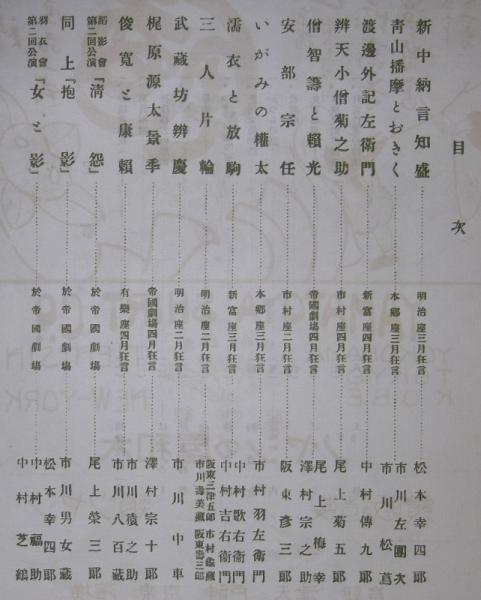 目次
新中納言知盛 明治座三月狂言 松本幸四郎
青山播摩とおきく 本郷座三月狂言 市川左團次 市川松蔦
渡邊外記左衞門 新富座四月狂言 中村傳九郎
辨天小僧菊之助 市村座四月狂言 尾上菊五郎
僧智籌と賴光 帝國劇場四月狂言 尾上梅幸 澤村宗之助
安部宗任 市村座二月狂言 阪東彥三郎
いがみの權太 本郷座三月狂言 市村羽左衞門
濡衣と放駒 新富座三月狂言 中村歌右衞門 中村吉右衞門
三人片輪 明治座二月狂言 阪東三津五郎 市村龜藏 市川壽美藏 阪東壽三郎
武藏坊辨慶 明治座二月狂言 市川中車
梶原源太景季 帝國劇場四月狂言 澤村宗十郎
俊寬と康賴 有樂座四月狂言 市川猿之助 市川八百藏
踏影會第二回公演「淸怨」 於帝國劇場 尾上榮三郎
同上「抱影」 於帝國劇場 市川男女藏
羽衣會第二回公演「女と影」 於帝國劇場 松本幸四郎 中村福助 中村芝鶴
NEW-YORK
KOBE